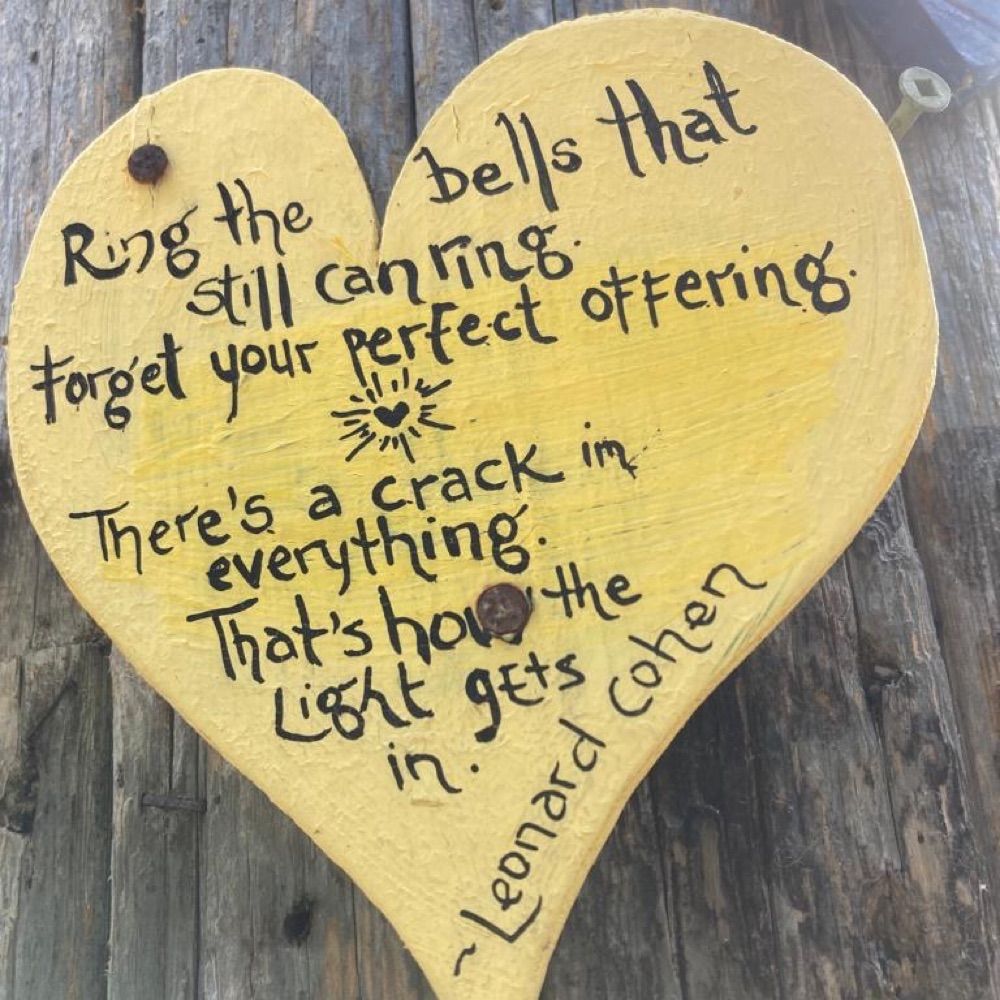 Ring the bells that
still can ring.
Forget your perfect offering.
There's a crack in
everything.
That's how the
Light gets
in.
~Leonard Cohen